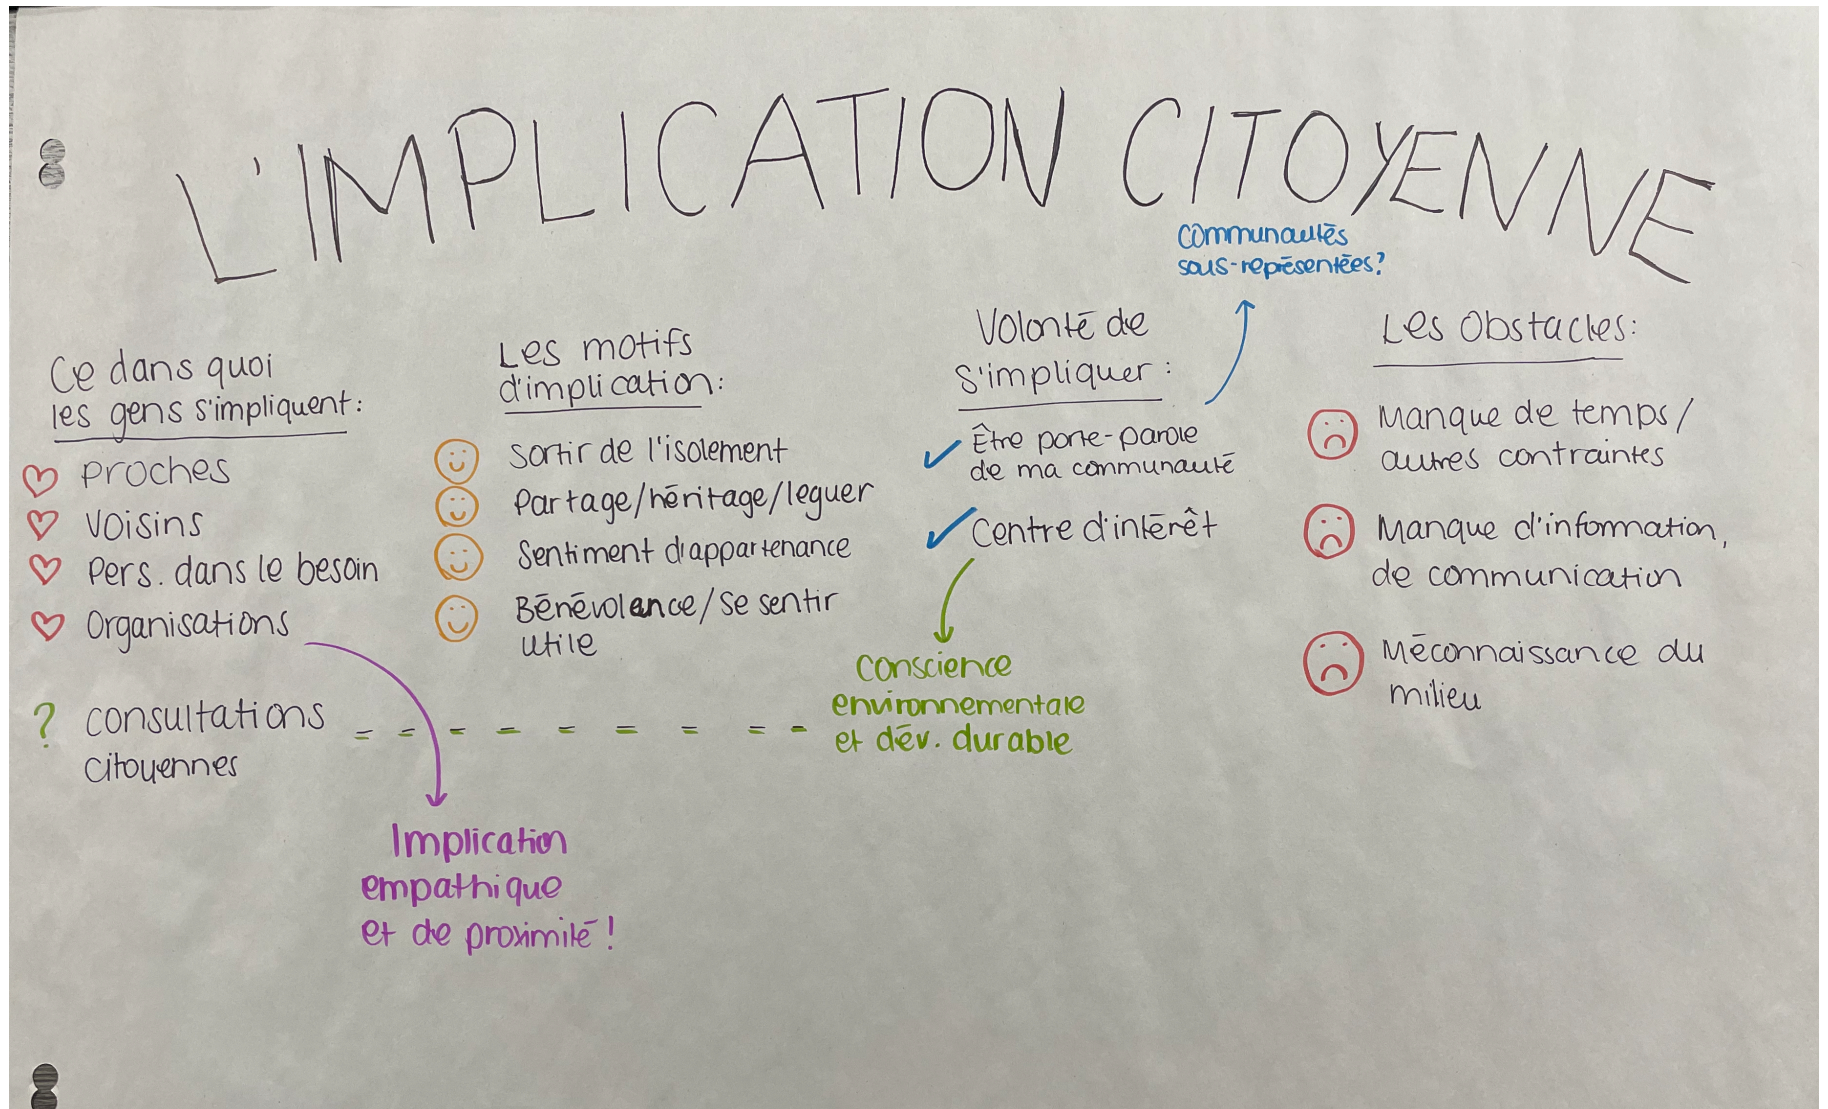 L'IMPLICATION CITOYENNE
Communautés
sous-représentées?
Ce dans quoi
les gens s'impliquent:
proches
voisins
Pers. dans le besoin
Organisations
? consultations
citoyennes
Implication
empathique
et de proximité!
Les motifs
d'implication:
Sortir de l'isolement
Partage/héritage/leguer
Sentiment d'appartenance
Bénévolence/se sentir
utile
Volonté de
s'impliquer:
Être porte-parole
de ma communauté
Centre d'intérêt
Conscience
environnementale
et dév. durable
Les Obstacles:
Manque de temps/
autres contraintes
Manque d'information,
de communication
Méconnaissance du
milieu